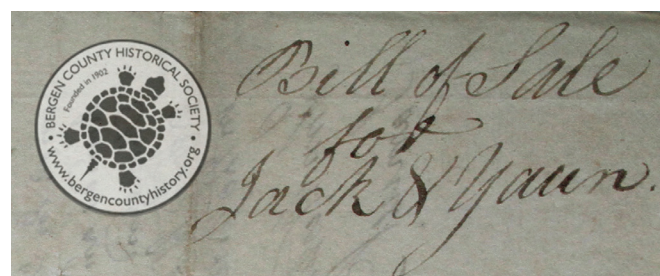 BERGEN COUNTY HISTORICAL SOCIETY
Founded in 1902
www.bergencountyhistory.org
Bill of Sale
for
Jack & Yaun.